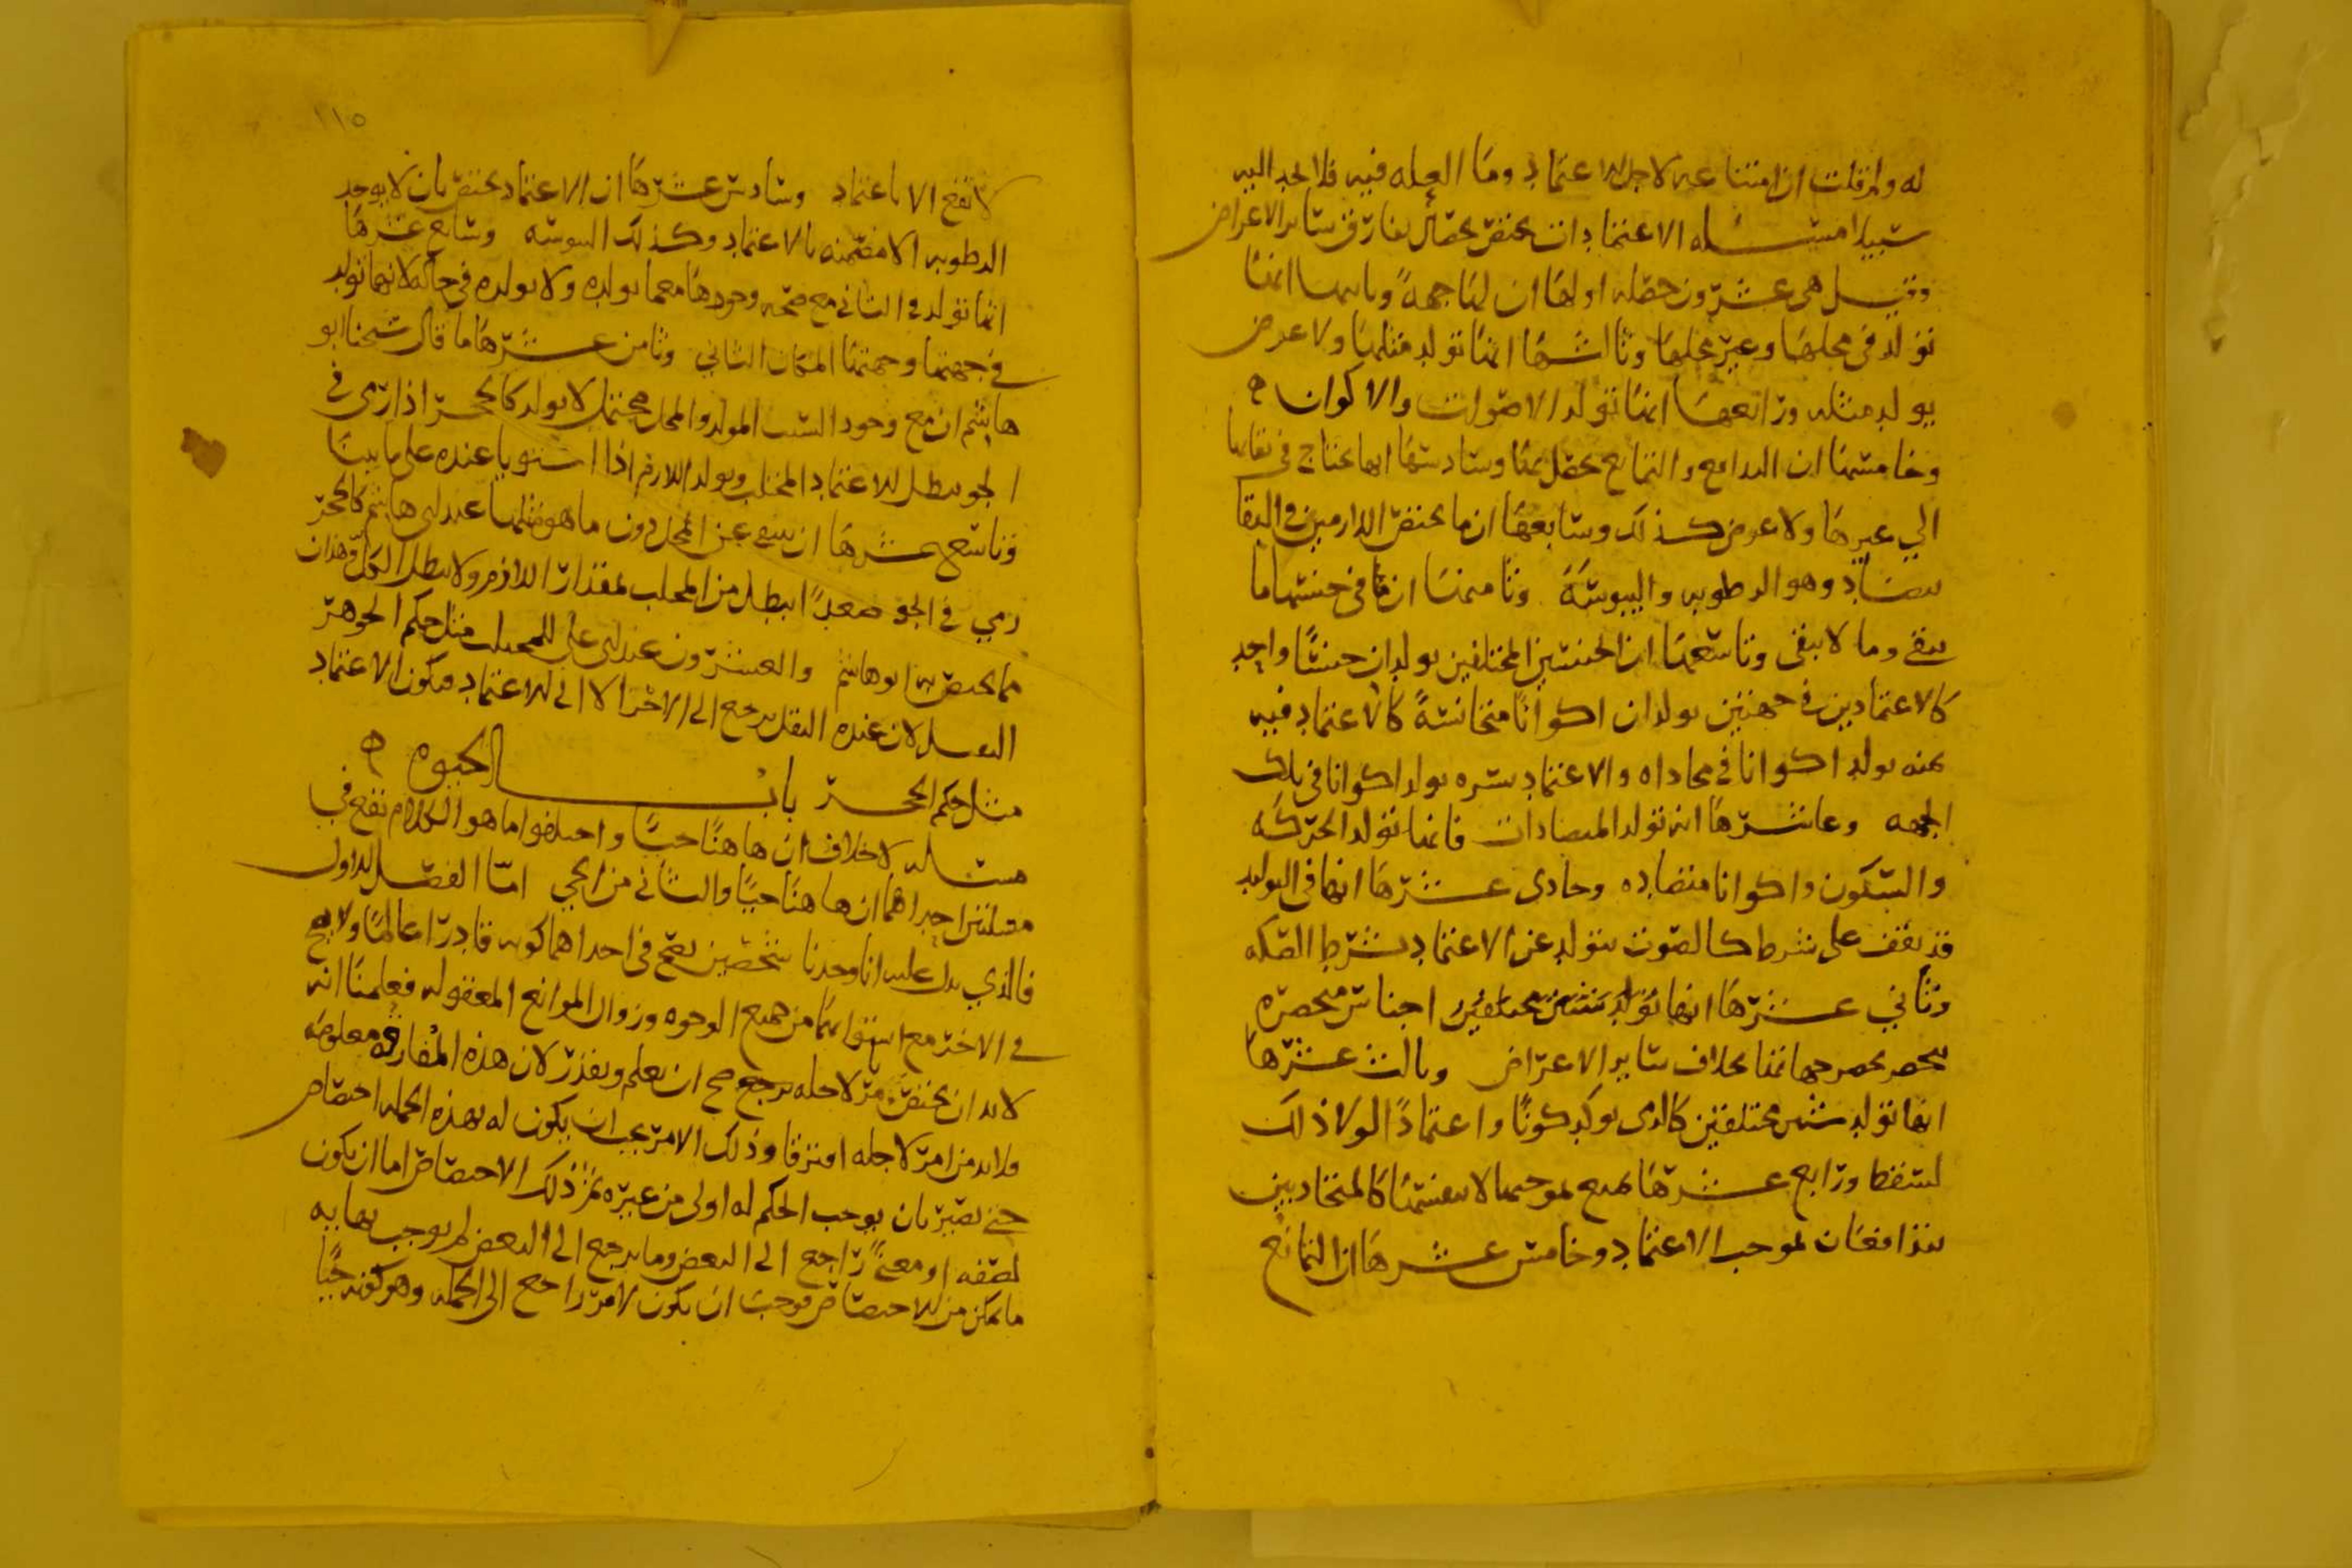 له ولم قلت ان امتناعه لاجل الاعتماد وما العله فيه فلا نجد اليه
سبيلا مسئله الاعتمادات تختص بخصال تفارق سائر الاعراض
وقيل هي عشرون خصله اولها ان لها جهةً وثانيها انها
تولد في محلها وغير محلها وثالثها انها تولد مثلها ولا عرض
يولد مثله ورابعها انها تولد الاصوات والاكوان ه
وخامسها ان التدافع والتمانع يحصل بها وسادسها انها تحتاج في بقائها
الي غيرها ولا عرض كذلك وسابعها ان ما يختص اللازم من في البقا
يتضاد وهو الرطوبه واليبوسة وثامنها ان في جنسها ما
يبقي وما لا يبقى وتاسعها ان الجنسين المختلفين يولدان جنسًا واحد
كالاعتمادين في جهتين يولدان اكوانًا متجانسةً كالاعتماد فيه
يمنه يولد اكوانا في محاذاه والاعتماد يسره يولد اكوانا في تلك
الجهه وعاشرها انه تولد المتضادات فانها تولد الحركه
والسكون واكوانا متضاده وحادى عشرها انها في التوليد
قد تقف على شرط كالصوت يتولد عن الاعتماد بشرط الصكه
وثاني عشرها انها تولد شيئين مختلفين اجناس منحصره
تنحصر بحصر جهاتها بخلاف سائر الاعراض وثالث عشرها
انها تولد شيئين مختلفين كالذى يولد كونًا واعتمادًا لولا ذلك
لسقط ورابع عشرها تمنع بموجبها لا بنفسها كالمتجاذبين
يتدافعان بموجب الاعتماد وخامس عشرها ان التمانع
١١٥
لا تقع الا باعتماد وسادس عشرها ان الاعتماد يختص بان لا يوجد
الرطوبه الا مضمنه بالاعتماد وكذلك اليبوسه وسابع عشرها
انها تولد في الثاني مع صحه وجودها مع ما تولده ولا تولده في حاله لانها تولد
في جهتها وجهتها المكان الثاني وثامن عشرها ما قال شيخنا ابو
هاشم ان مع وجود السبب المولد والمحل محتمل لا يولد كالحجر اذا رمى في
الجو يبطل الاعتماد المجتلب ويولد اللازم اذا استويا عنده على ما بينا
وتاسع عشرها ان ينتفي عن المحل دون ما هو مثلها عند ابى هاشم كالحجر
رمي في الجو صعدًا يبطل من المجتلب بمقدار اللازم ولا يبطل الكل وهذان
مما يختص به ابو هاشم والعشرون عند ابى علي للمحل مثل حكم الجوهر
الثقيل لان عنده الثقل يرجع الى الاجزا لا الى الاعتماد فيكون الاعتماد
مثل حكم الحجر باب الحيوه ه
مسئله لا خلاف ان ها هنا حيًا واختلفوا ما هو الكلام يقع في
مسئلتين احداهما ان ها هنا حيًا والثاني من الحي امّا الفصل الاول
فالذي يدل عليه انا وجدنا شخصين يصح في احداهما كونه قادرًا عالمًا ولا يصح
في الاخر مع استوائهما من جميع الوجوه وزوال الموانع المعقوله فعلمنا انه
لا بد ان يختص بامر لاجله يرجع صح ان يعلم ويقدر لان هذه المفارقه معلومه
فلا بد من امر لاجله افترقا وذلك الامر يجب ان يكون له بهذه الجمله اختصاص
حتى يصير بان يوجب الحكم له اولى من غيره ثم ذلك الاختصاص اما ان يكون
لصفه او معنىً راجع الى البعض وما يرجع الى البعض لم يوجب بها به
ما يمكن من الاختصاص فوجب ان يكون لامر راجع الى الجمله وهو كونه حيًا